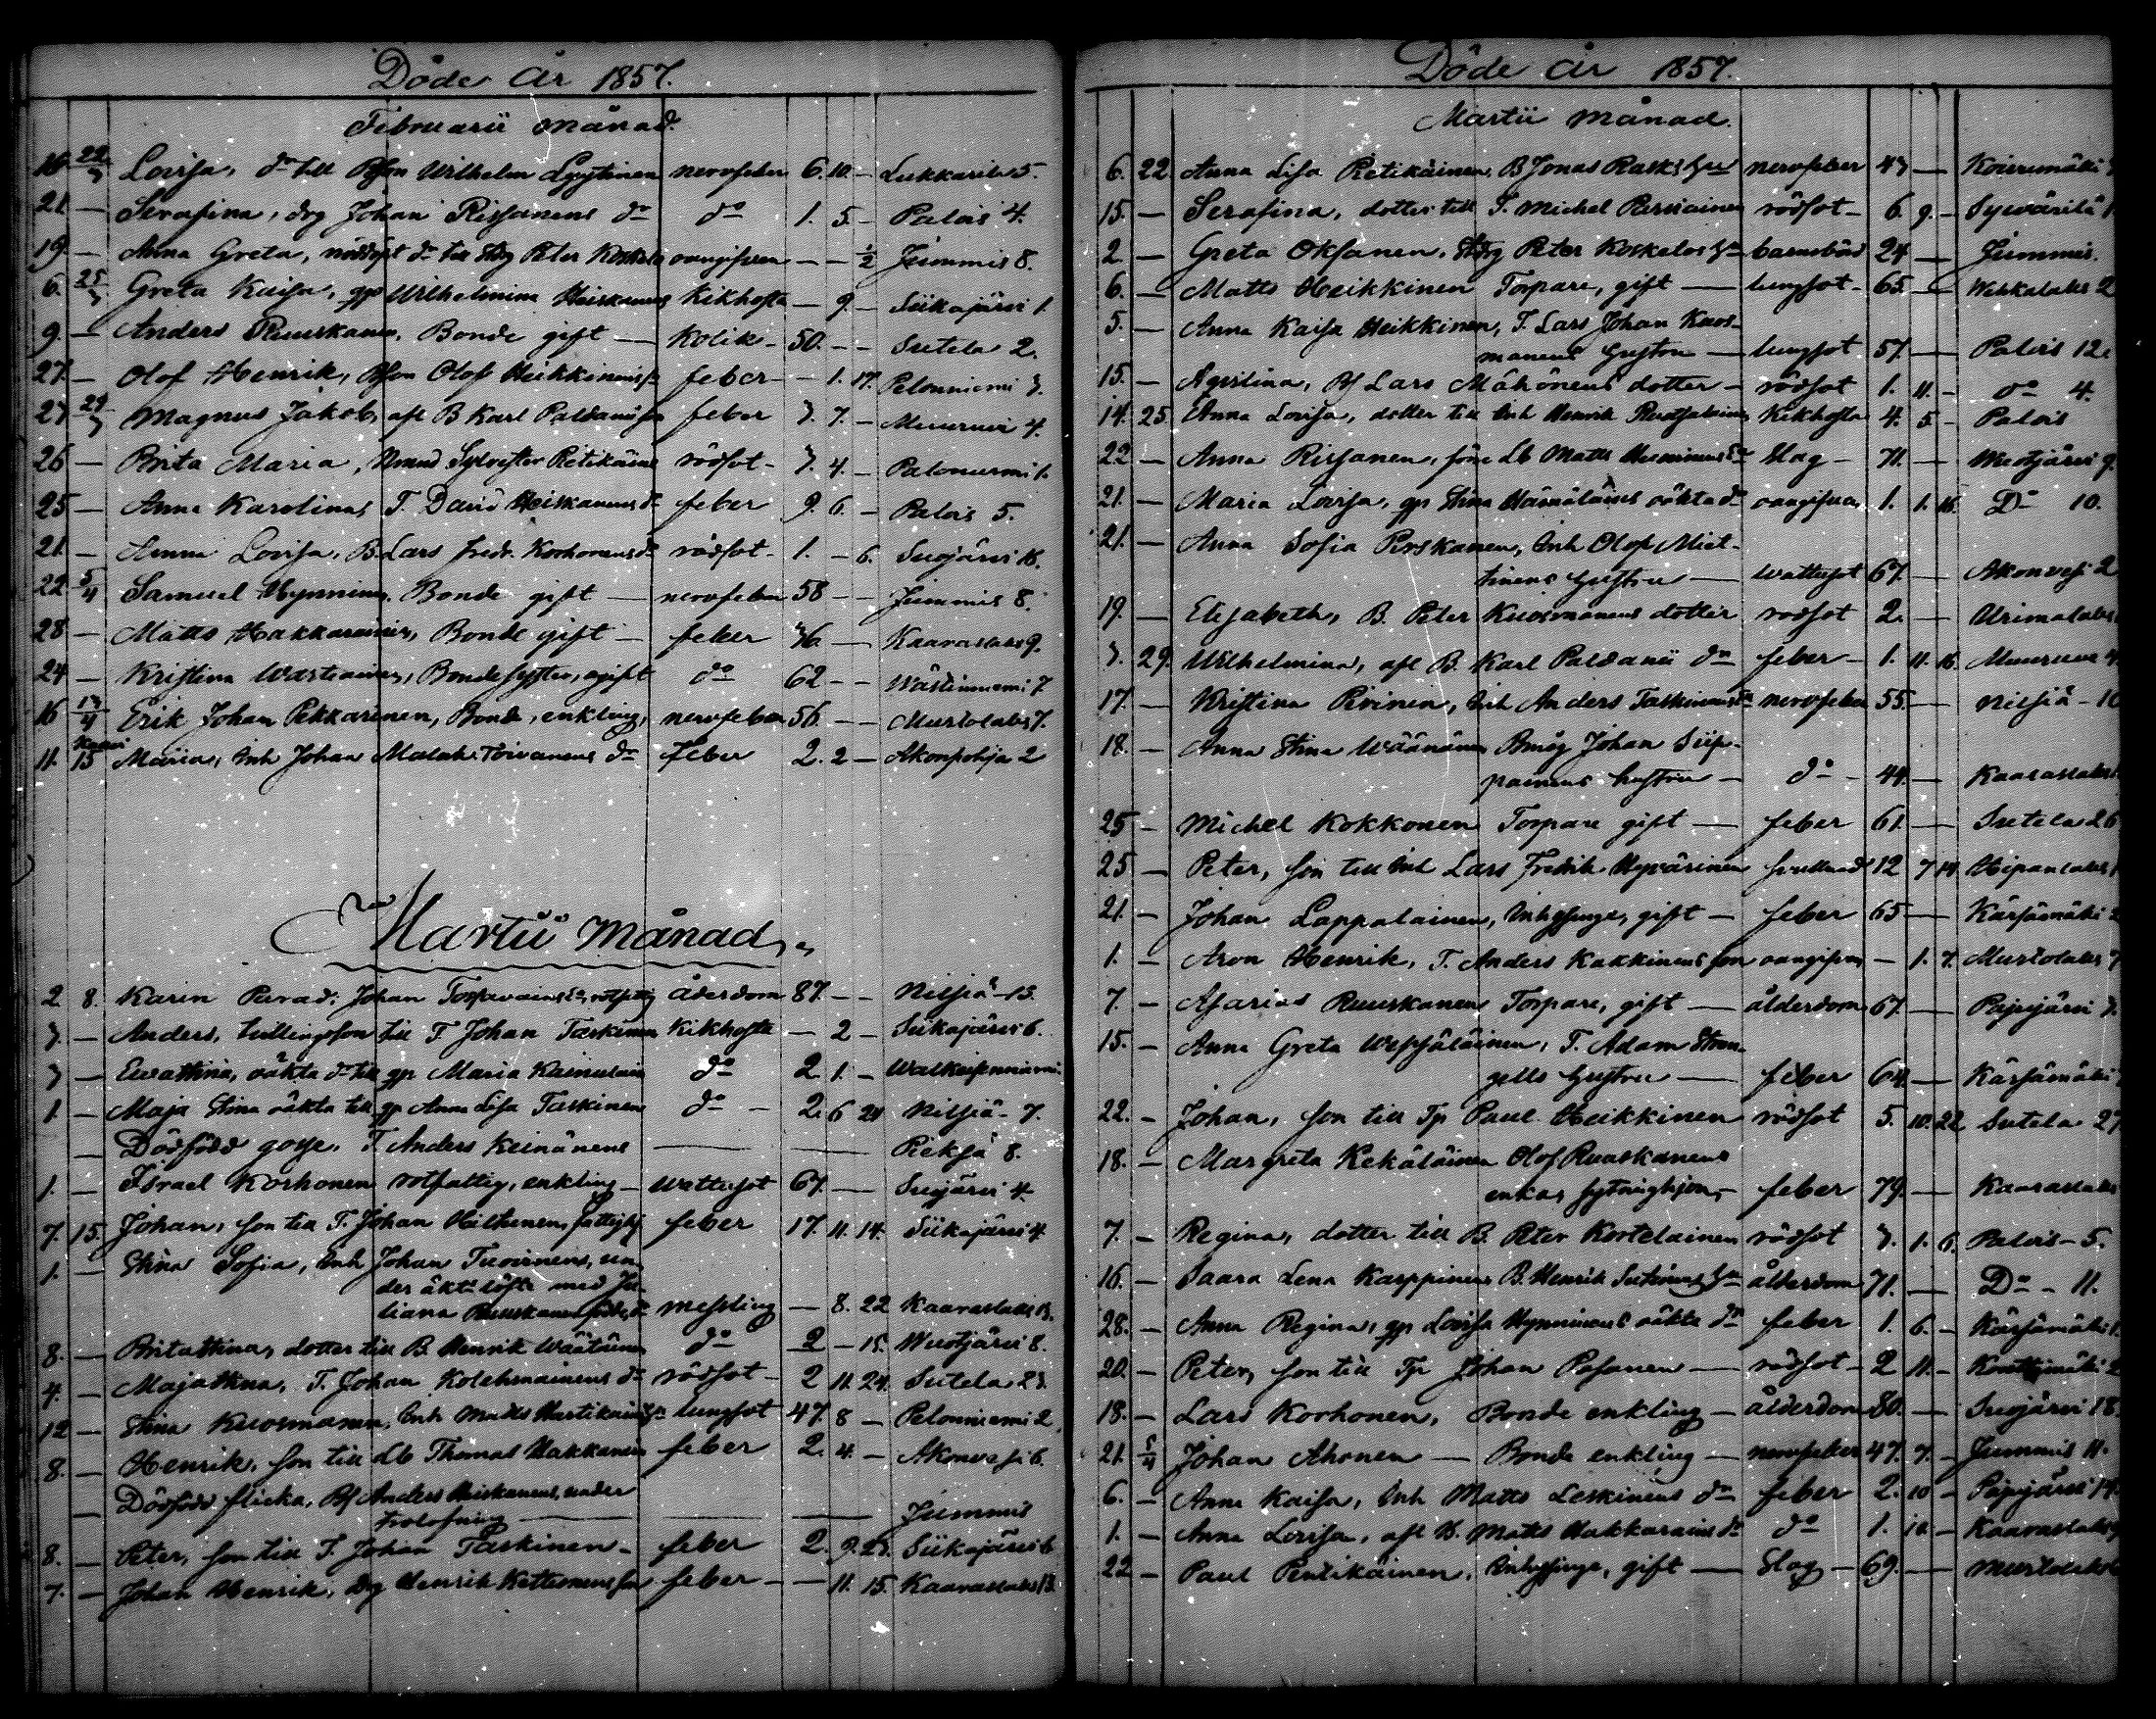 Döde år 1857.
Februarii månad.
16. 22/3 Lovisa, dr till Bson Wilhelm Lyytinen nervfeber 6. 10. – Lukkarila 5.
21 — Serafina, drg Johan Rissanens dr do 1. 5 – Palois 4.
19. — Anna Greta, nöddöpt dr till Peter Koskelo oangifven — — 1/2 Jummis 8.
6. 25/3 Greta Kaisa, gp Wilhelmina Heiskanens Kikhosta — 9. – Siikajärvi 1.
9. — Anders Ruuskanen, Bonde gift — Kolik – 50. — – Sutela 2.
27. — Olof Henrik, Bson Olof Heikkinens sn feber – — 1. 17. Pelonniemi 3.
27 29/3 Magnus Jakob, afl B Karl Paldanii sn feber 3. 7. – Muuruvi 4.
26 — Brita Maria, Sylvester Retikäine rödsot – 3. 4. – Palonurmi 1.
25 — Anna Karolina, T. David Heiskanens dr feber 9. 6. – Palois 5.
21. — Anna Lovisa, B. Lars Fredr. Korhonens dr rödsot – 1. – 6. Suojärvi 16.
22 5/4 Samuel Hynninen, Bonde gift — nervfeber 58 — – Jummis 8.
28 — Matts Hakkarainen, Bonde gift — feber 46 — – Kaaraslaks 9.
24 — Kristina Wartiainen, Bondesyster, ogift do 62 — – Wästinniemi 7
16 13/4 Erik Johan Pekkarinen, Bonde, enkling, nervfeber 56. — – Murtolaks 7.
11. Kaavi 15 Maria, Inh Johan Malak. Toivanens dr feber 2. 2 – Akonpohja 2
Martii månad.
2 8. Karin Johan rotfattig ålderdom 87. — – Nilsiä – 15.
3. — Anders, tvillingson till T Johan Taskinen Kikhosta — 2 – Siikajärvi 6.
3 — Evastina, oäkta dr till gp Maria Kainulain do 2 1. –
1. — Maja Stina oäkta till gp Anna Lisa Taskinens do – 2. 6 24 Nilsiä – 7.
— Dödfödd gosse, T Anders Keinänens — — Pieksä 8.
1. — Israel Korhonen rotfattig, enkling – wattusot 67. — Suojärvi 4.
7. 15. Johan, son till T. Johan Hiltunen, feber 17. 11. 14. Siikajärvi 4
1. — Stina Sofia, Inh Johan Tuovinens, un-
der äkt. löfte med Ju-
liana Ruuskanen födde dr messling — 8. 22 Kaaraslaks 13.
8. — Brita Stina, dotter till B Henrik Väätäinen do 2 – 15. Wuotjärvi 8.
4. — Maja Stina, T. Johan Kolehmainens dr rödsot – 2 11. 24. Sutela 23.
12 — Stina Kuosmanen, Inh Matts Martikain hu lungsot 47. 8 – Pelonniemi 2.
8. — Henrik, son till Lb Thomas Hakkanen feber 2. 4. – Akonvesi 6.
— Dödfödd flicka, Bs Anders Heiskanens, under
trolofning — — Jummis
8. — Peter, son till T. Johan Taskinen – feber 2. 9. 23. Siikajärvi 6
7. — Johan Henrik, Drg Henrik Kettunens son feber – — 11. 15. Kaaraslaks 13.
Döde år 1857.
Martii månad.
6. 22 Anna Lisa Retikäinen, B Jonas Rasks hu nervfeber 43 — Koivumäki 3
15. — Serafina, dotter till T. Michel Parviainen rödsot – 6. 9. – Syvärilä 1.
2 — Greta Oksanen, Peter Koskelos hu barnsbörd 24 — Jummis.
6. — Matts Heikkinen Torpare, gift — lungsot – 65 — 2
5. — Anna Kaisa Heikkinen, T. Lars Johan Kuos-
manens hustru — lungsot 57. — Palois 12.
15. — Agustina, Bs Lars Mähönens dotter – rödsot 1. 11. – do 4.
14. 25. Anna Lovisa, dotter till Inh Henrik Ruotsalainen Kikhosta 4. 5. – Palois
22 — Anna Rissanen, förre Lb Matts slag – 71. — Wuotjärvi 9.
21. — Maria Lovisa, gp Stina Hämäläines oäkta dr oangifven, 1. 1. 16. Do 10.
21. — Anna Sofia Purskanen, Inh Olof Miet-
tinens hustru — wattusot 67. — Akonvesi 2
19. — Elisabeth, B. Peter Kuosmanens dotter rödsot 2. — Urimolaks
3. 29. Wilhelmina, afl B. Karl Paldanii dr feber – 1. 11. 16. Muuruvi 4.
17. — Kristina Pirinen, Inh Anders Taskinens hu nervfeber 55. — Nilsiä – 10
18. — Anna Stina Wäänänen Bmåg Johan Siip-
painens hustru — do – 44. — Kaaraslaks
25 — Michel Kokkonen Torpare gift — feber 61. — Sutela 26
25 — Peter, son till Inh Lars Fredrik Hyvärinen svullnad 12 7 14 Hipanlaks 1
21. — Johan Lappalainen, Inhysinge, gift — feber 65 — Kärsämäki 2
1. — Aron Henrik, T. Anders Kakkinens son oangifven — 1. 7. Murtolaks 7
7. — Asarias Ruuskanen Torpare, gift — ålderdom 67. — Pajujärvi 3.
15. — Anna Greta Wepsäläinen, T. Adam Stran-
gells hustru — feber 64. — Kärsämäki
22. — Johan, son till Tp Paul Heikkinen rödsot 5. 10. 22 Sutela 27
18. — Margreta Kekäläinen Olof Ruuskanens
enka, sytninghjon, – feber 79. — Kaaraslaks
7. — Regina, dotter till B. Peter Kortelainen rödsot 3. 1. 6. Palois – 5.
16. — Saara Lena Karppinen B. Henrik hu ålderdom 71. — Do – 11.
28. — Anna Regina, gp Lovisa Hynninens oäkta dr feber 1. 6. – Kärsämäki 1.
20. — Peter, son till Tp Johan Pasanen — rödsot – 2 11. – 2
18. — Lars Korhonen, Bonde enkling — ålderdom 80. — Suojärvi 18.
21. 5/4 Johan Ahonen — Bonde enkling — nervfeber 47. 7. – Jummis 11.
6. — Anna Kaisa, Inh Matts Leskinens dr feber 2. 10 – Pajujärvi 14.
1. — Anna Lovisa, afl B. Matts Hakkarains dr do 1. 10. – Kaaraslaks 9
22 — Paul Pentikäinen, Inhysinge, gift — slag – 69. — Murtolaks